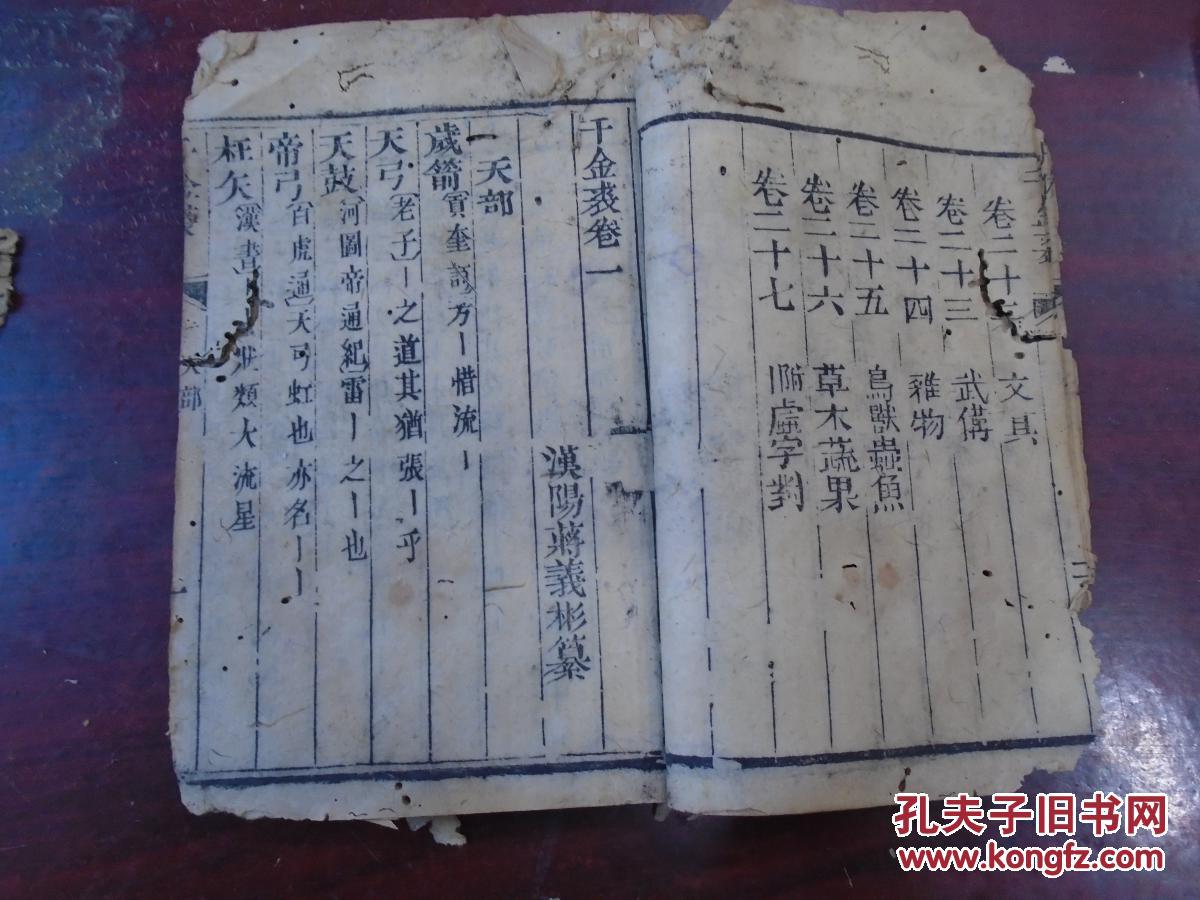 卷二十二　文具
卷二十三　武備
卷二十四　雜物
卷二十五　鳥獸蟲魚
卷二十六　草木蔬果
卷二十七　附虛字對
千金裘卷一
漢陽蔣義彬纂
一天部
歲籥（賈奎）方｜惜流｜
天弓（老子）｜之道其猶張｜乎
天鼓（河圖帝通紀）雷｜之｜也
帝弓（白虎通）天弓虹也亦名｜｜
枉矢（漢書）狀類大流星
天部
孔夫子旧书网
www.kongfz.com